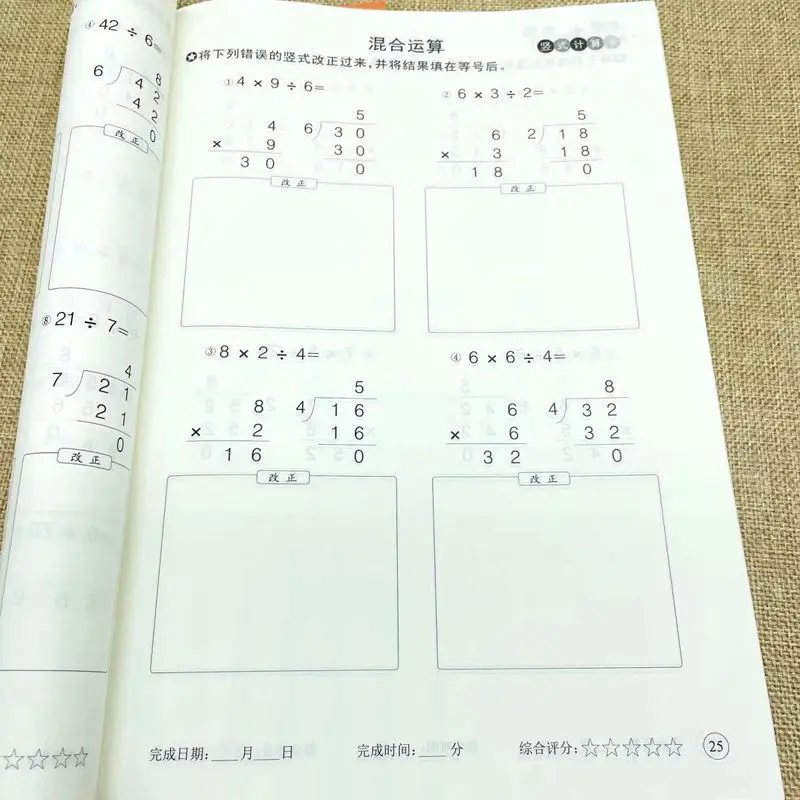 ④ 42 ÷ 6=
8
6 4 2
4 2
0
改正
⑧ 21 ÷ 7=
4
7 2 1
2 1
0
改正
☆☆☆☆
混合运算
竖式计算
✪将下列错误的竖式改正过来,并将结果填在等号后。
① 4 × 9 ÷ 6=
4
× 9
3 0
5
6 3 0
3 0
0
改正
② 6 × 3 ÷ 2=
6
× 3
1 8
5
2 1 8
1 8
0
改正
③ 8 × 2 ÷ 4=
8
× 2
1 6
5
4 1 6
1 6
0
改正
④ 6 × 6 ÷ 4=
6
× 6
3 2
8
4 3 2
3 2
0
改正
完成日期:___月___日 完成时间:___分 综合评分:☆☆☆☆☆ 25